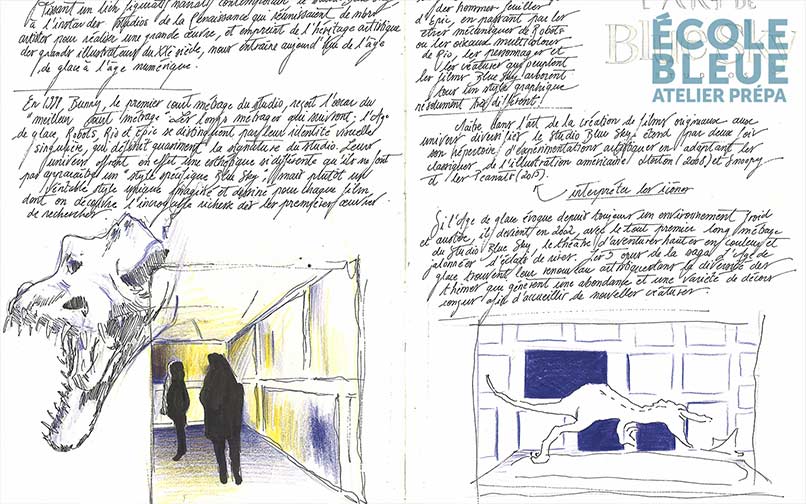 Puisant un lien narratif contemporain, le
à l'instar des studios de la Renaissance qui réunissaient de nombreux
artistes pour réaliser une grande œuvre, et empreint de l'héritage artistique
des grands illustrateurs du XXe siècle, nous entraîne aujourd'hui de l'âge
de glace à l'âge numérique.
En 1998, Bunny, le premier court métrage du studio, reçoit l'oscar du
"meilleur court métrage". Les longs métrages qui suivent, l'Age
de glace, Robots, Rio et Epic se distinguent par leur identité visuelle
singulière, qui définit la signature du studio. Leurs
univers offrent en effet une esthétique si différente qu'ils ne font
pas apparaître un "style spécifique Blue Sky", mais plutôt un
véritable style unique imaginé et dessiné pour chaque film
dont on découvre l'incroyable richesse dès les premières œuvres
de recherches.
des hommes feuilles
d'Epic, en passant par les
êtres mécaniques de Robots
ou les oiseaux multicolores
de Rio, les personnages et
les créatures qui peuplent
les films Blue Sky arborent
tous un style graphique
résolument très différent!
L'ART DE
Blue Sky
ÉCOLE
BLEUE
ATELIER PRÉPA
Maître dans l'art de la création de films originaux aux
univers diversifiés le studio Blue Sky étend par deux fois
son répertoire d'expérimentations artistiques en adaptant les
classiques de l'illustration américaine Horton (2008) et Snoopy
et les Peanuts (2015).
interpréter les scènes
Si l'Age de glace évoque depuis toujours un environnement froid
et austère, il devient en 2002, avec le tout premier long métrage
du Studio Blue Sky, le théâtre d'aventures hautes en couleur et
jalonnées d'éclats de rires. Les 5 opus de la saga d'Age de
glace trouvent leur renouveau artistique dans la diversité des
thèmes qui génèrent une abondance et une variété de décors
conçus afin d'accueillir de nouvelles créatures